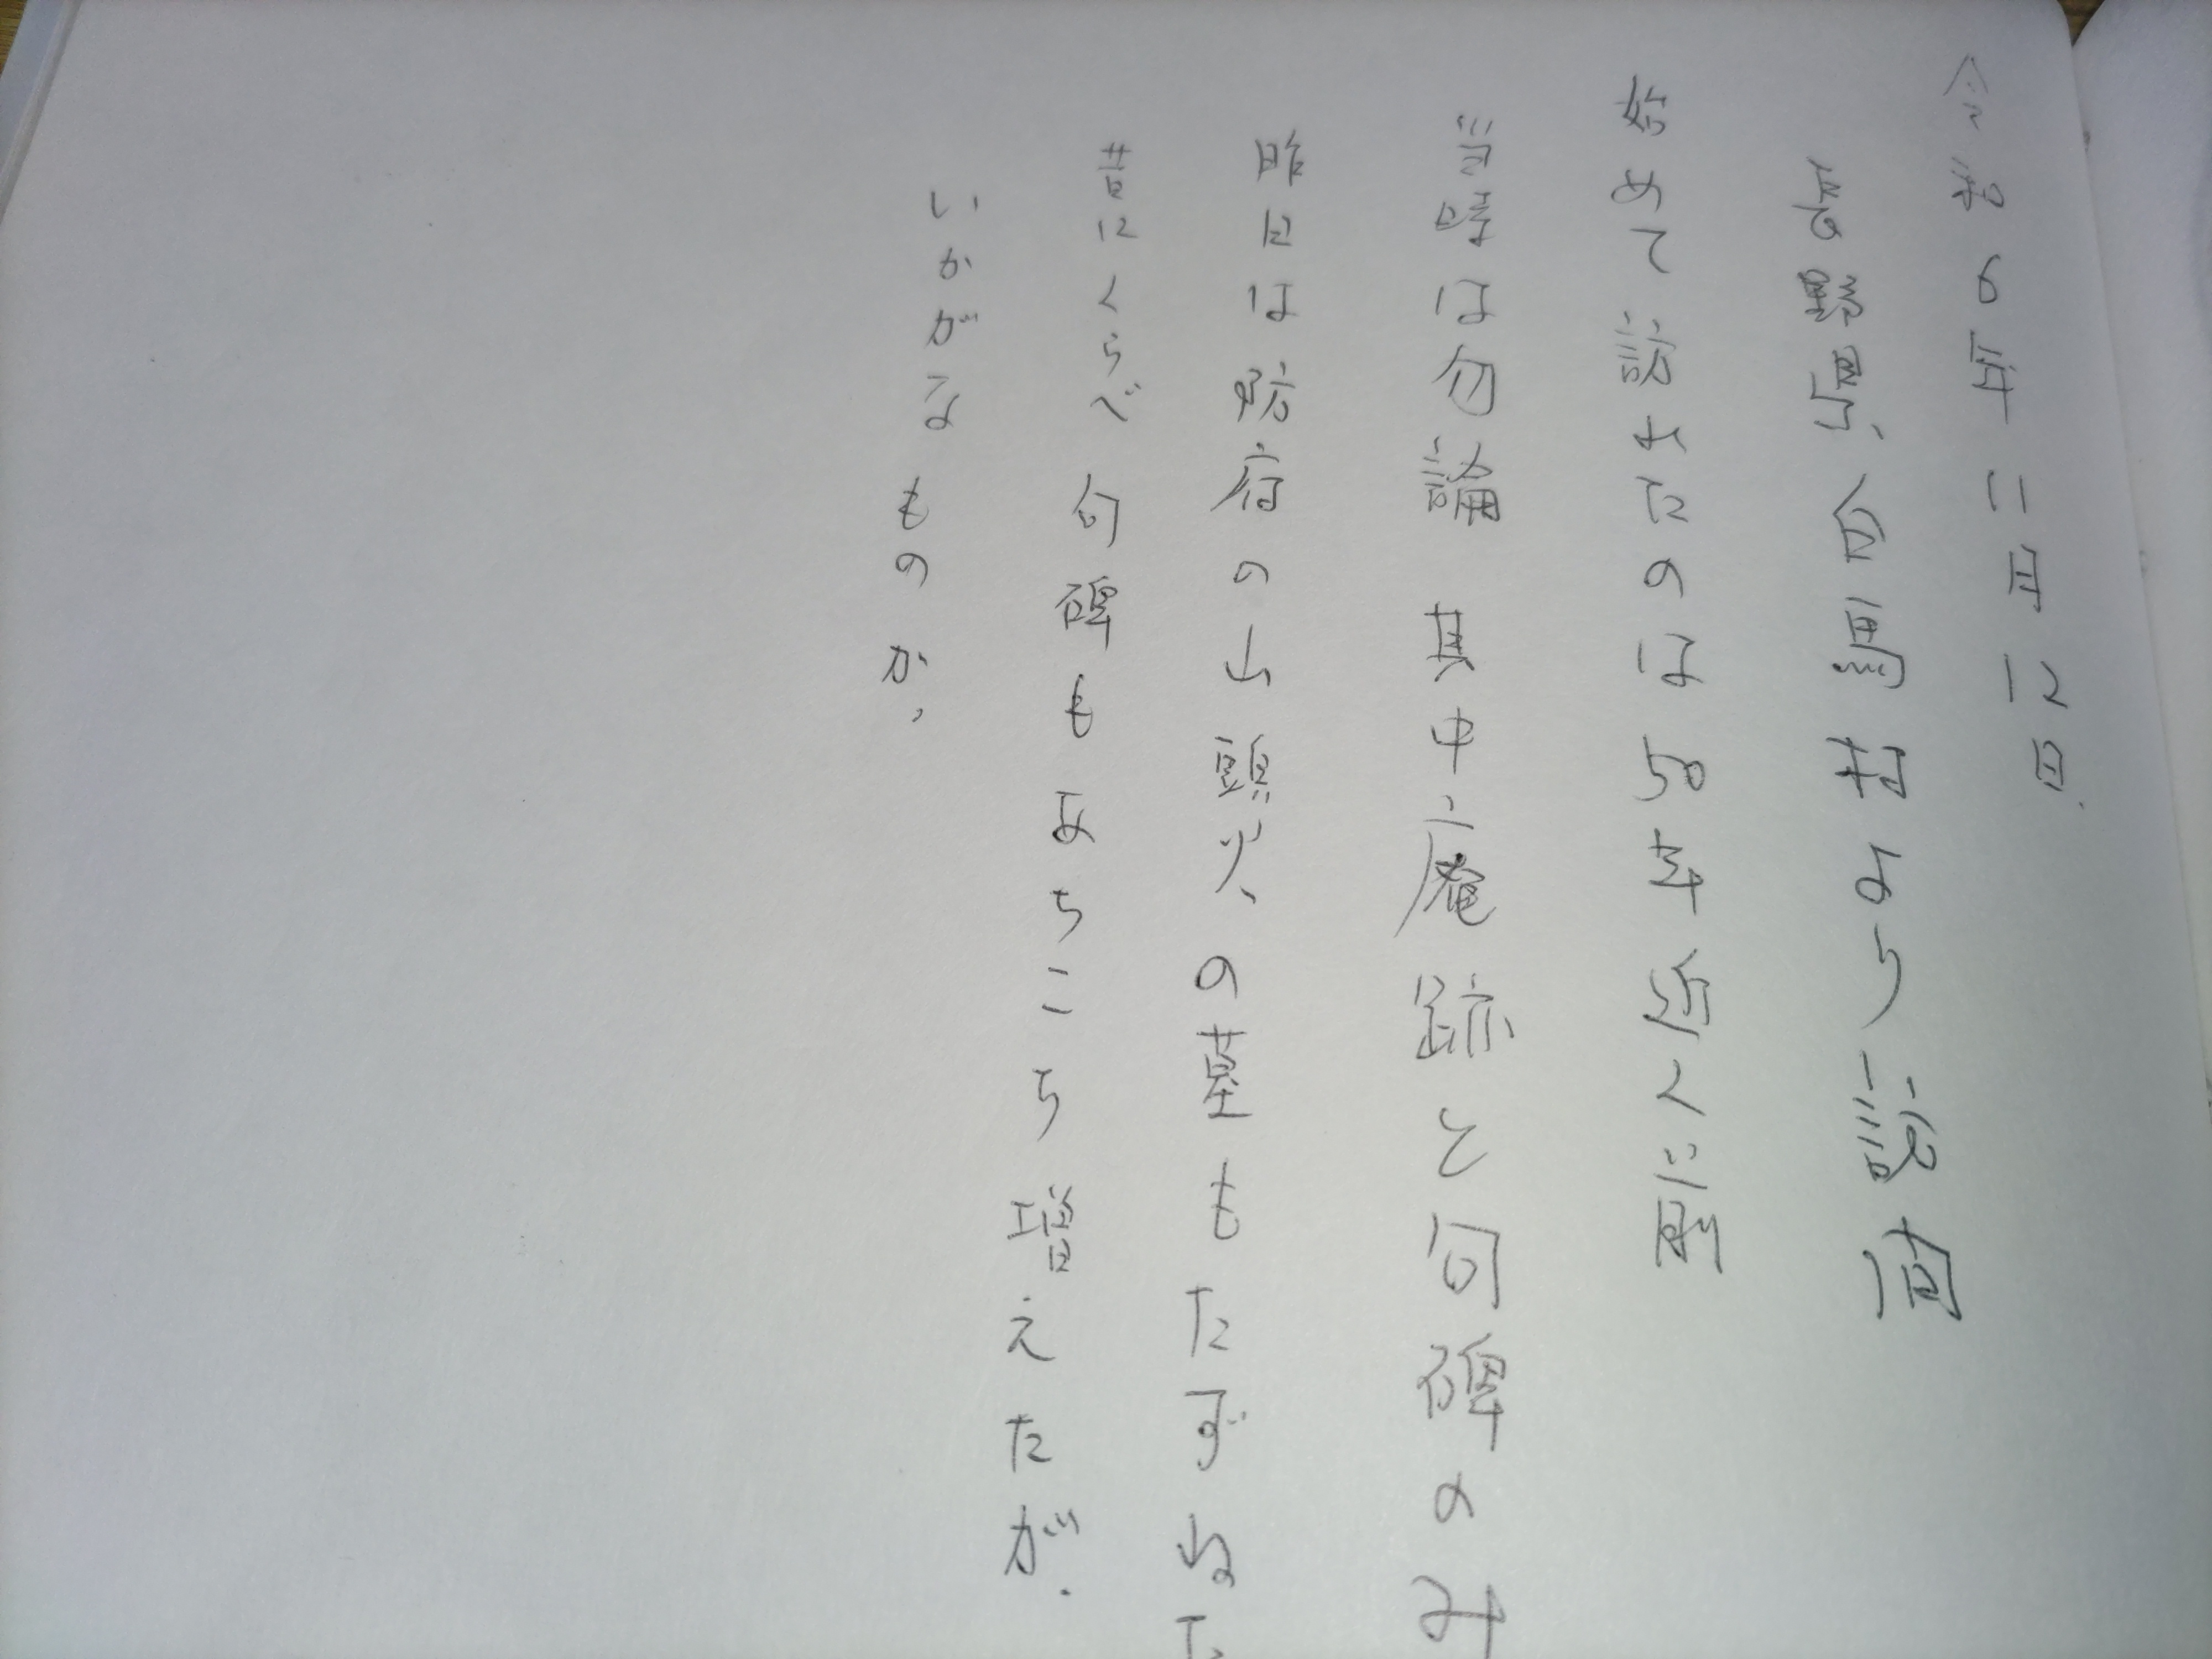 令和6年11月12日
長野県白馬村より訪
始めて訪ねたのは50年近くに前
当時は勿論 其中庵跡と句碑のみ
昨日は防府の山頭火の墓もたずねた
昔にくらべ句碑もあちこち増えたが、
いかがなものか、